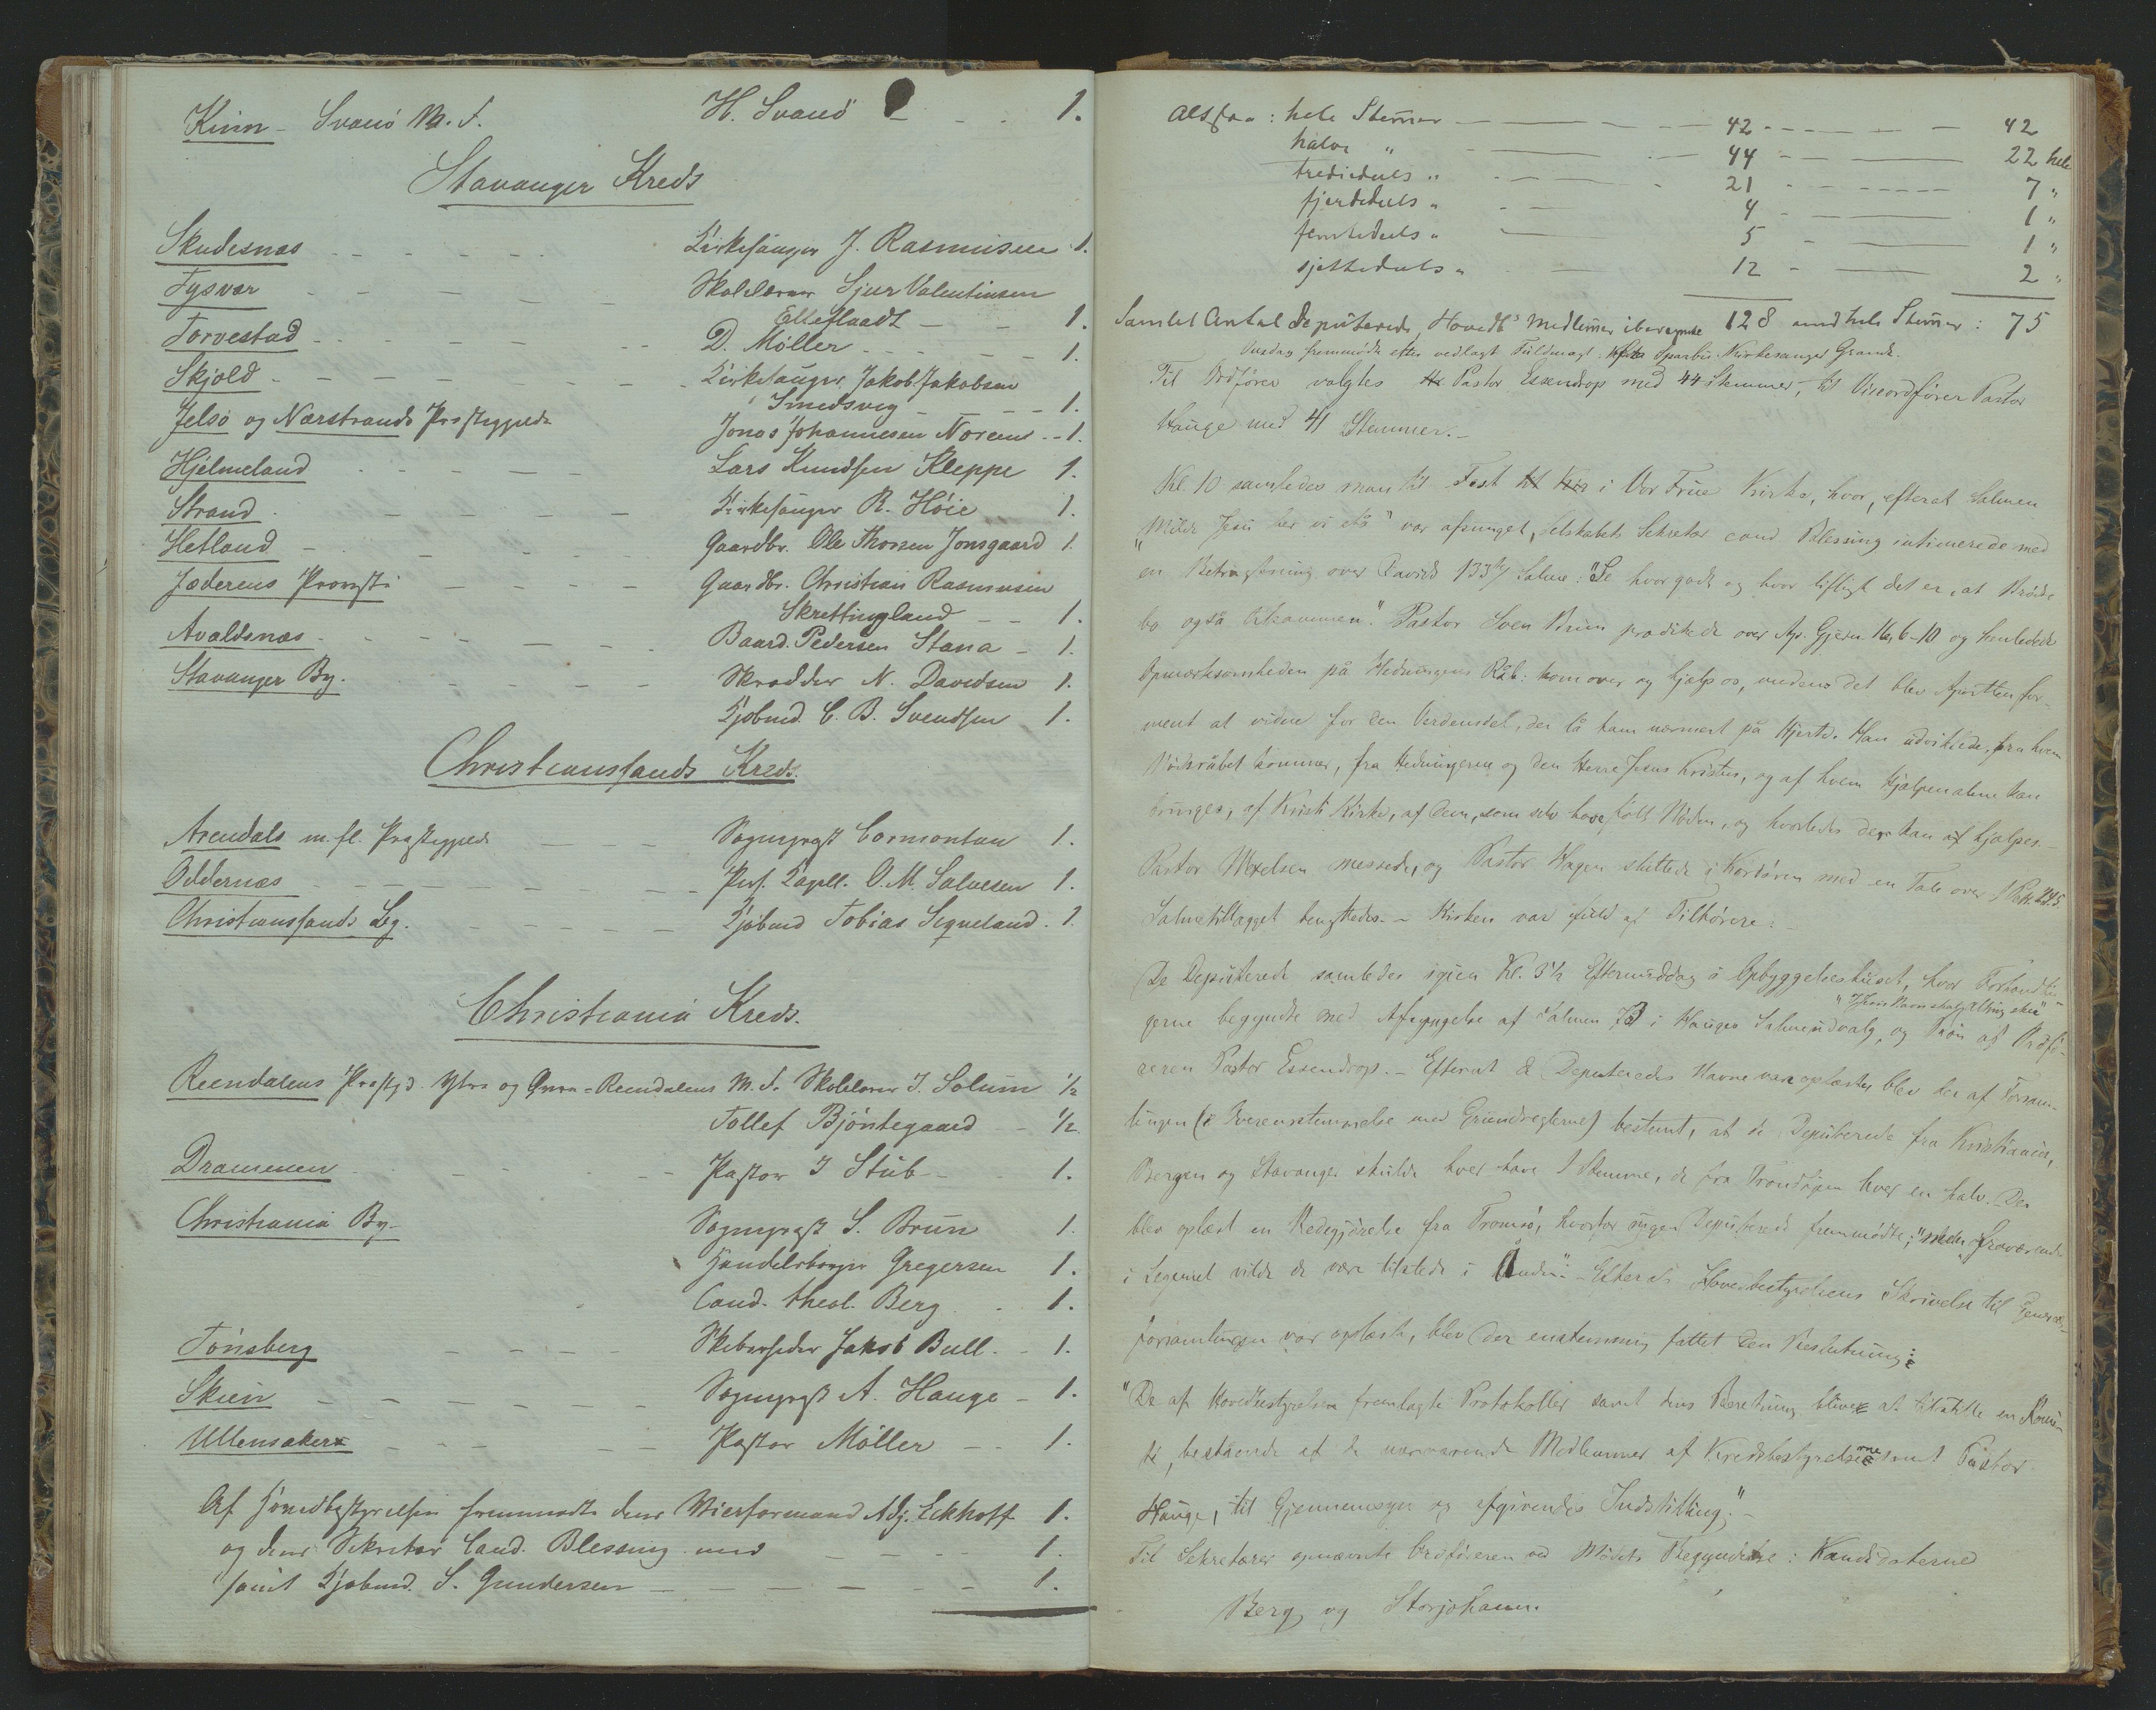 Kinn - Svanö M. F. H. Svanö - - . 1.
Stavanger Kreds
Skudesnæs - - - - - Kirkesanger J. Rasmussen 1.
Tysvær - - - - - Skolelærer Sjur Valentinsen
Elleflaadt - - 1.
Torvestad - - - - - D. Möller - - - - 1.
Skjold - - - - - Kirkesanger Jakob Jakobsen
Smedsvig - - - 1.
Jelsö og Nærstrands Præstegjelde Jonas Johannesen Norem - 1.
Hjelmeland - - - - Lars Knudsen Kleppe 1.
Strand - - - - Kirkesanger R. Höie 1.
Hetland - - - - Gaardbr. Ole Thorsen Jonsgaard 1.
Jæderens Provsti - - - Gaardbr. Christian Rasmussen
Skrettingland - - 1.
Avaldsnæs - - - - - Baard Pedersen Stana - 1.
Stavanger By. - - - - - Skrædder N. Davidsen 1.
Kjøbmd. C. B. Svendsen 1.
Christianssands Kreds.
Arendals m. fl. Præstegjeld - - - Sogneprest Cormontan 1.
Oddernæs - - - - - Pers. Capell. O. M. Salvesen 1.
Christianssands By. - - - - - Kjöbmd Tobias Seqveland. 1.
Christiania Kreds.
Reendalens Præstgd. Ytre og Øvre-Reendalens M. F. Skolelærer I. Solum ½
Tollef Bjöntegaard - ½
Drammen - - - - Pastor I Stub - 1.
Christiania By - Sogneprest S. Brun 1.
Handelsborger Gregersen 1.
Cand. theol. Berg . . 1.
Tönsberg - - - - Skibsreder Jakob Bull. - 1.
Skien - - - - - Sogneprest A. Hauge - 1.
Ullensaker - - - - Pastor Möller - - 1.
Af Hovedbestyrelsen fremmødte dens Vieformand Adj. Eckhoff 1.
og dens Sekretær Cand. Blessing med - - - 1.
samt Kjøbmd. S. Gundersen - - - - - 1.
Altsaa: hele Stemmer - - - 42 - - - 42
halve " - - - 44 - - - 22 hele
trediedeels " - - - 21 - - - 7 "
fjerdedeels " - - 4 - - - 1 "
femtedeels " - 5 - - 1 "
sjettedeels " - 12 - - 2 "
Samlet Antal Deputerede, Hovedb's Medlemmer iberegnede 128 med hele Stemmer: 75
Onsdag fremmødte efter vedlagt Fuldmagt: Kirkesanger Grande.
Til Ordförer valgtes Pastor Essendrop med 44 Stemmer, til Viceordförer Pastor
Hauge med 41 Stemmer. -
Kl. 10 samledes man til Fest i Vor Frue Kirke, hvor, efterat Salmen
"Milde Jesu her vi stå" var afsunget, Selskabets Sekretær cand Blessing intimerede med
en Betragtning over Davids 133te Salme: "Se hvor godt og hvor lifligt det er, at Brödre
bo også tilsammen". Pastor Sven Brun prædikede over Ap. Gjern. 16, 6-10 og henledede
Opmærksomheden på Hedningens Råb: kom over og hjælp os, medens det blev Apostlen for-
ment at vidne for den Verdensdel, der lå ham nærmest på Hjerte. Han udviklede, fra hvem
Nödråbet kommer, fra Hedningerne og den Herre Jesus Kristus, og af hvem Hjælpen alene kan
bringes, af Kristi Kirke, af dem, som selv have fölt Nöden, og hvorledes der kan hjælpes. -
Pastor Wexelsen messede, og Pastor Hagen sluttede i Kordören med en Tale over 1 Petr. 2,4.5.
Salmetillægget benyttedes. - Kirken var fuld af Tilhörere. -
De Deputerede samledes igjen Kl. 3½ Eftermiddag i Opbyggelseshuset, hvor Forhandlin-
"I Jesu Navn skal al Ting ske"
gerne begyndte med Afsyngelse af Salmen 73 i Hauges Salmeudvalg, og Bön af Ordfö-
reren Pastor Essendrop. - Efterat de Deputeredes Navne vare oplæste, blev der af Forsam-
lingen (i Overensstemmelse med Grundreglerne) bestemt, at de Deputerede fra Kristiania,
Bergen og Stavanger skulde hver have 1 Stemme, de fra Trondhjem hver en halv. Der
blev oplæst en Redegjörelse fra Tromsö, hvorfor ingen Deputerede fremmödte; "men fraværende
i Legemet vilde de være tilstede i Ånden". - Efterat Hovedbestyrelsens Skrivelse til General-
forsamlingen var oplæst, blev der enstemmig fattet den Beslutning:
"De af Hovedbestyrelsen fremlagte Protokoller samt dens Beretning blive at tilstille en Komi-
te, bestående af de nærværende Medlemmer af Kredsbestyrelserne samt Pastor
Hauge, til Gjennemsyn og afgivende Indstilling". -
Til Sekretærer opnævnte Ordföreren ved Mödets Begyndelse: Kandidaterne
Berg og Storjohann.